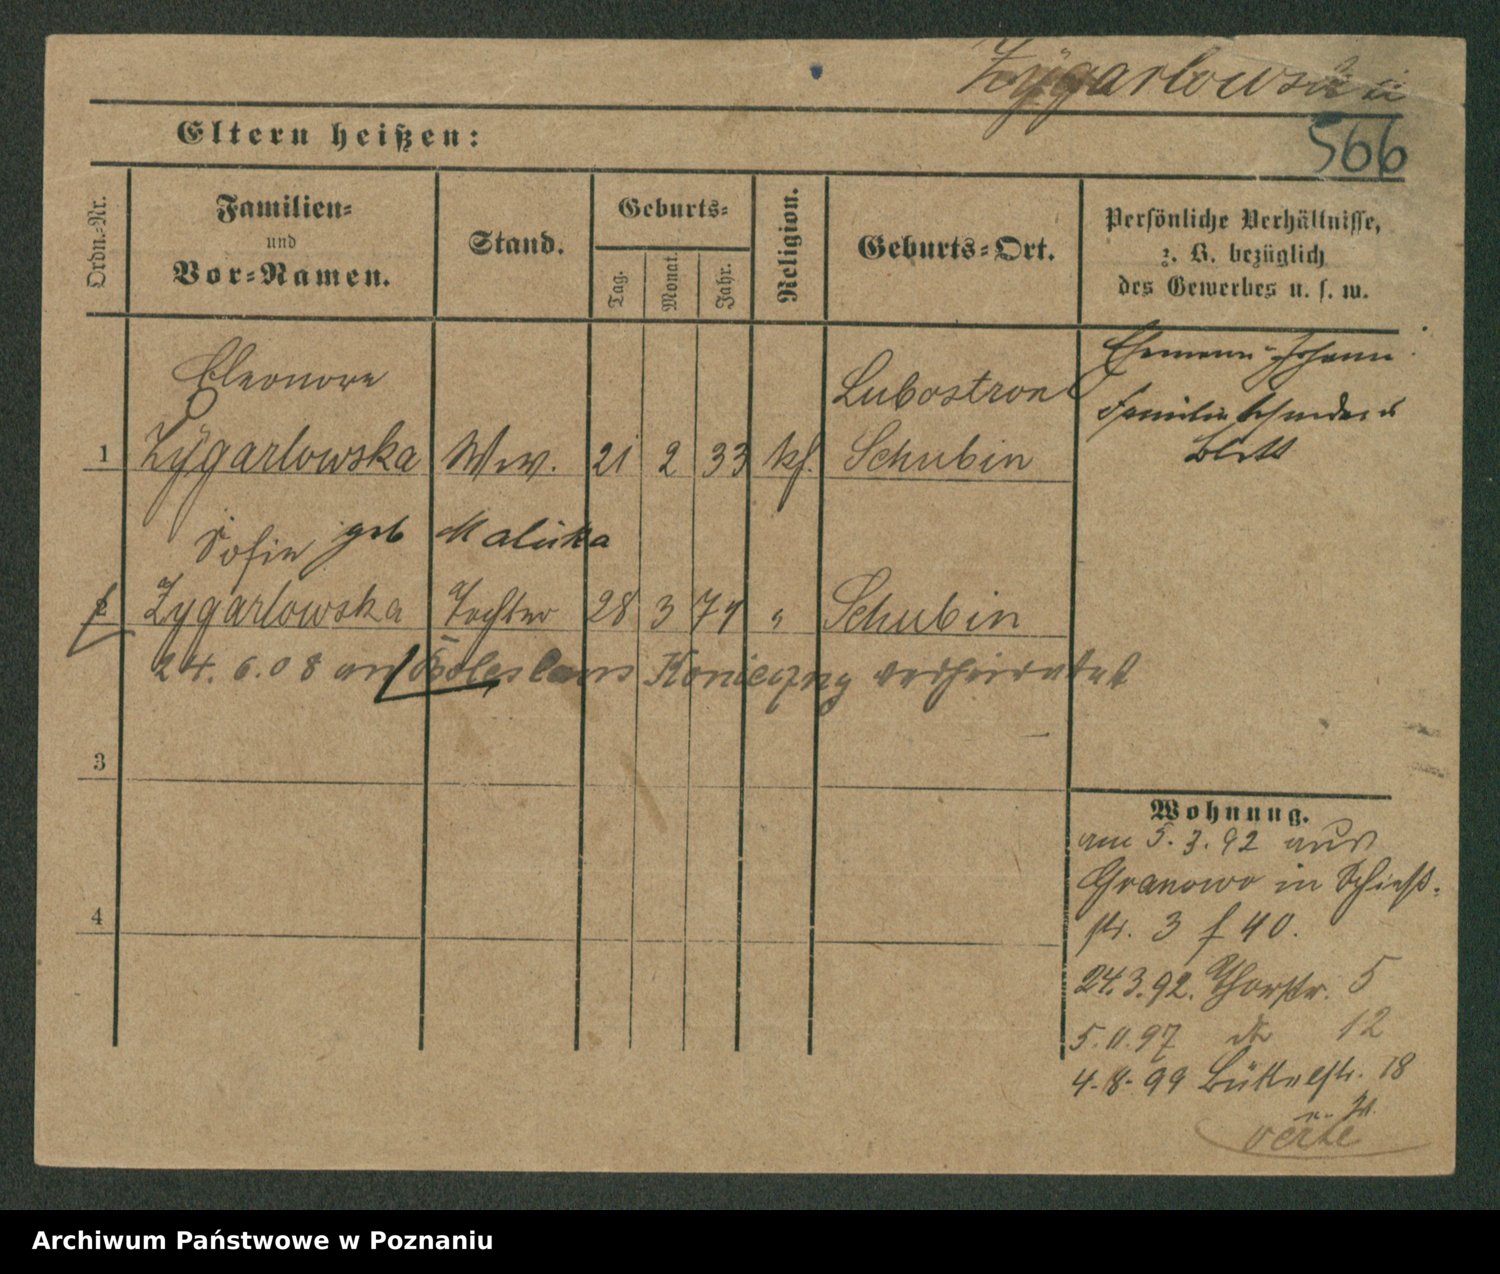 Zÿgarlowski
566
Eltern heißen:
Ordn.-Nr.
Familien- und Vor-Namen.
Stand.
Geburts-
Tag. Monat. Jahr.
Religion.
Geburts-Ort.
Persönliche Verhältnisse,
z. B. bezüglich
des Gewerbes u. s. w.
Eleonore Lubostron
1 Zÿgarlowska Ww. 21 2 33 kf. Schubin
Ehemann Johann
Familie
Blatt
Sofie geb Malicka
2 Zygarlowska Tochter 28 3 74 " Schubin
24. 6. 08 an Boleslaus Konieczny verheiratet
3
4
Wohnung.
am 5. 3. 92 aus
Granowo in Schieß-
str. 3 f 40.
24.3.92. Thorstr. 5
5.11.97 do 12
4.8.99 Büttelstr. 18
verte
Archiwum Państwowe w Poznaniu